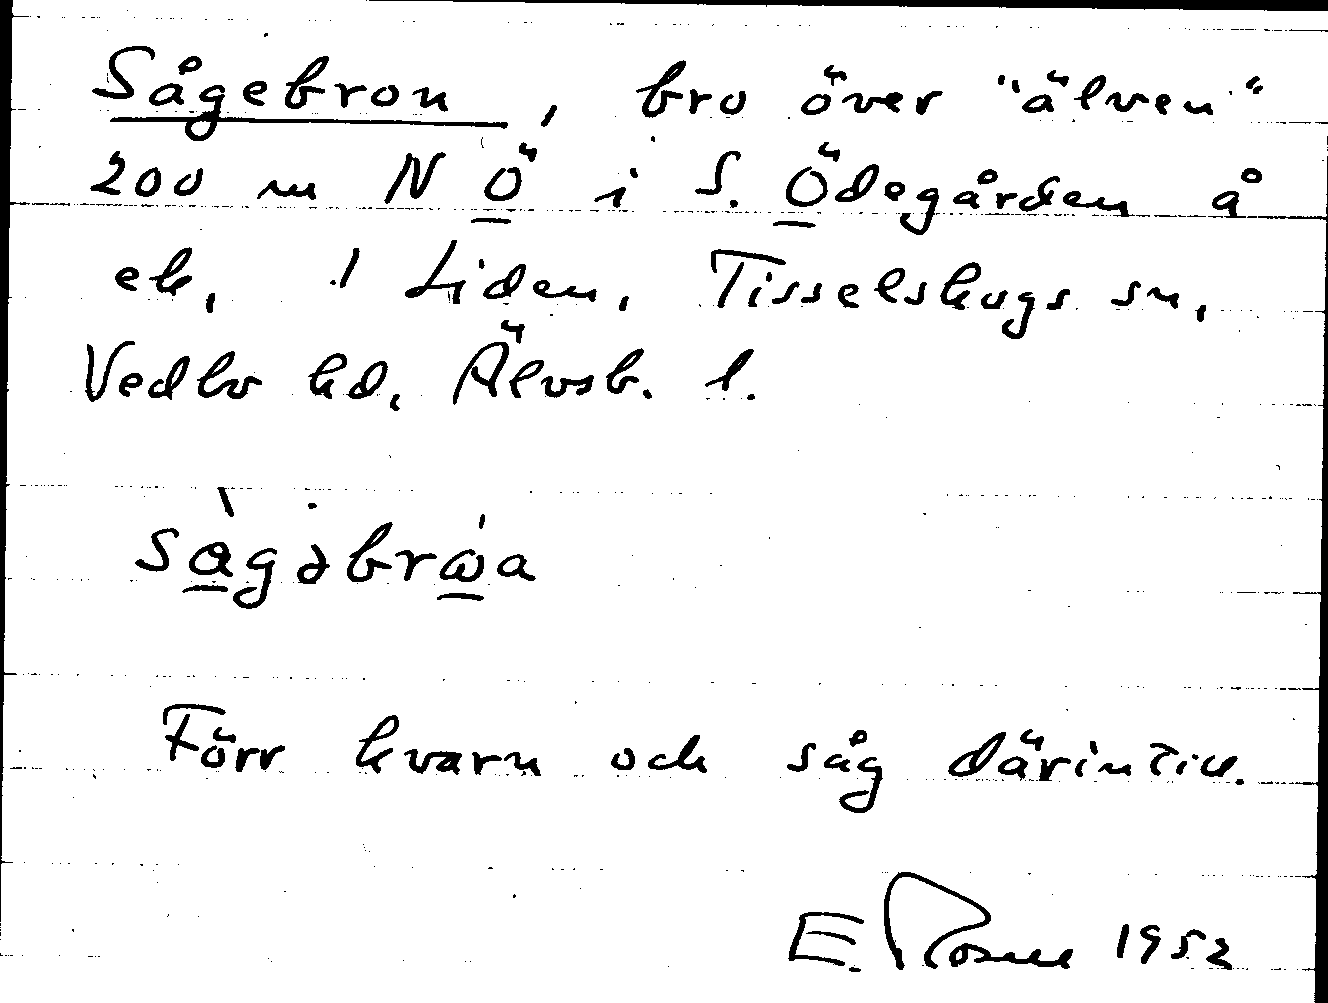 Sågebron, bro över "älven"
200 m NÖ i S. Ödegården å
ek. 1 Liden, Tisselskogs sn,
Vedbo hd, Älvsb. l.
Förr kvarn och såg därintill.
E. Rosell 1952